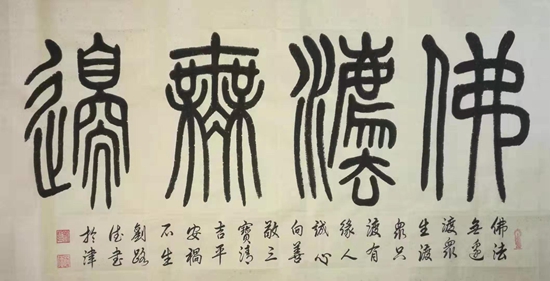 佛灋無邊
佛法
无邊
渡衆
生渡
衆只
渡有
緣人
誠心
向善
敬三
寶清
吉平
安禍
不生
劉路
德書
於津